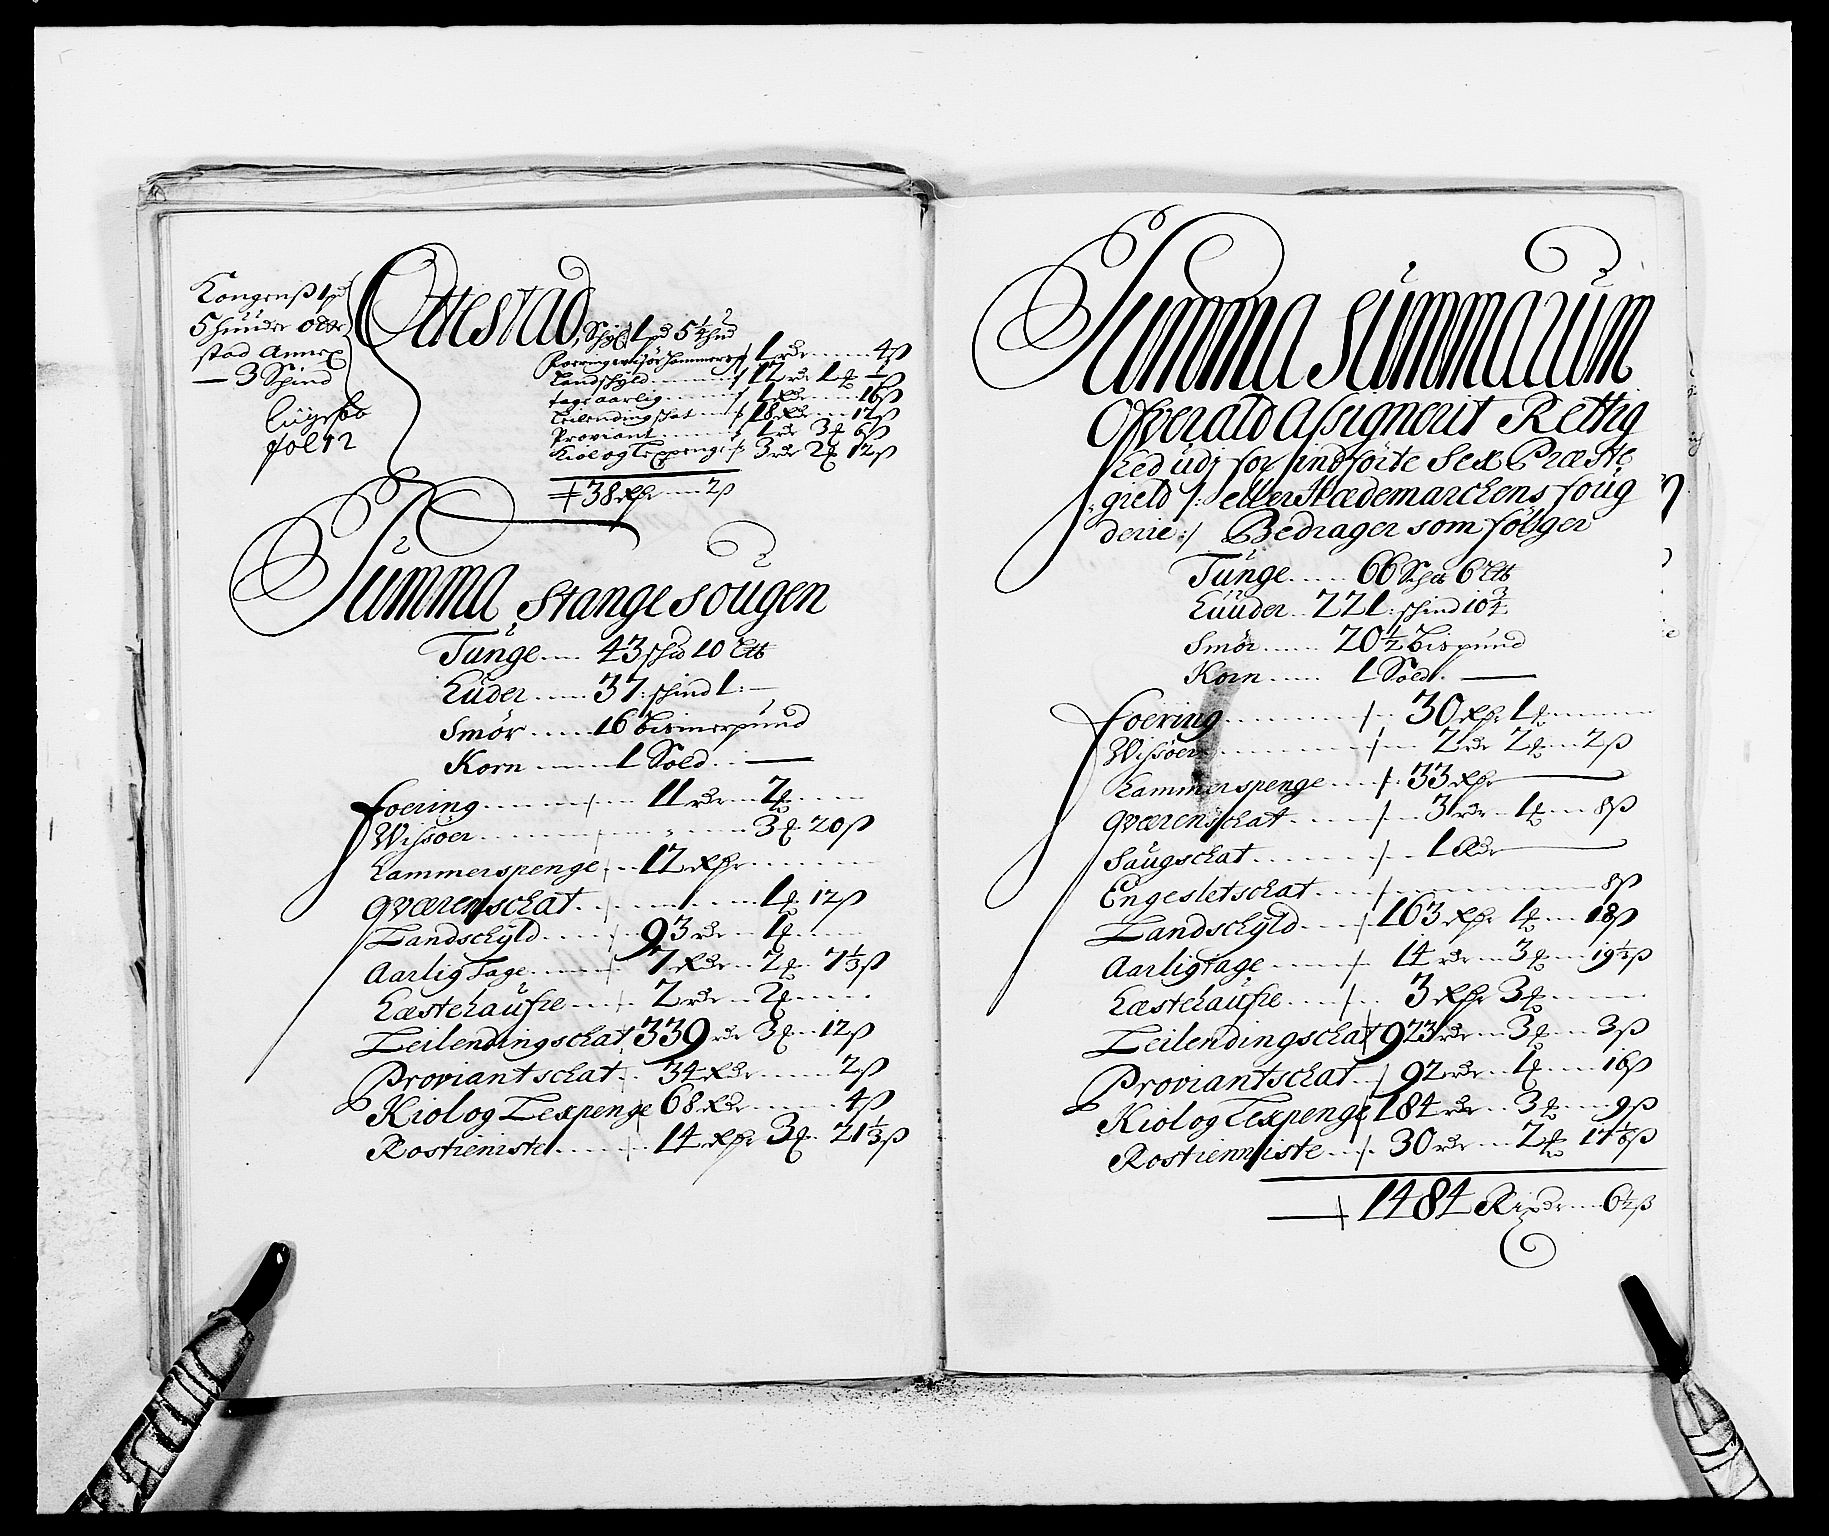 Kongenß 1 pd
5 huuder Otte
stad Annex
— 3 Schind
lügebo
fol 12
Ottestad, Schyl 1 pd 5¼ hud
Foering wisör Kammerspg /. 1 rdr ...... 4 ß
Landschyld ........ /. 12 rdr 1 ƒ ½ ß
tage aarlig ...... /. 1 Rdr .... 16 ß
Leilending schat .... /. 18 Rdr .... 12 ß
Proviant ......... /. 1 rdr 3 ƒ 6 ß
Kiol og Lexpenge /. 3 rdr 2 ƒ 12 ß
+ 38 Rdr .... 2 ß
Summa Stange sougen
Tunge .... 43 schd 10 Ltb
Huder ..... 37: schind 1: —
Smör ..... 16 bismerpund
Korn ...... 1 Sold .. —
Foering ......... /. ... 11 rdr ... 2 ƒ .....
Wissoer ............ /. ..... 3 ƒ 20 ß
Kammerspenge /. .. 12 Rdr .........
Qværenschat .. /. ..... 1 ƒ 12 ß
Landschyld ..... /. .. 93 rdr .. 1 ƒ ....
Aarlig Tage ...... /. 7 Rdr .. 2 ƒ. 7⅓ ß
Hæstehaufre .... /. 2 rdr .. 2 ƒ .....
Leilendingschat /. 339 rdr 3 ƒ ... 12 ß
Proviantschat /. .. 34 Rdr ...... 2 ß
Kiol og Lexpenge /. 68 Rdr ...... 4 ß
Rostieniste ...... /. .. 14 Rdr 3 ƒ. 21⅓ ß
Summa Summarum
Ofverald Assignerit Rettig
hed udj for indförte Sex Præste
gield /: eller Hædemarckens foug
derie :/ Bedrager som fölger
Tunge ..... 66 Schd 6 Ltb
Huuder .. 221: schind 10¾
Smör ...... 20½ bispund
Korn ..... 1 Sold. —
Foering ............ /. .. 30 Rdr 1 ƒ .......
Wissoer ............ /. ... 2 rdr 2 ƒ ... 2 ß
Kammerspenge .... /. 33 Rdr —
Qværenschat ...... /. ... 3 rdr .. 1 ƒ .... 8 ß
Saugschat ......... /. ... 1 Rdr —
Engesletschat ..... /. ............ 8 ß
Landschyld ..... /. 163 Rdr 1 ƒ ... 18 ß
Aarlig tage ...... /. .. 14 rdr ... 3 ƒ ... 19⅓ ß
Hæstehaufre ..... /. .. 3 Rdr 3 ƒ ......
Leilendingschat /. 923 rdr ... 3 ƒ ... 3 ß
Proviantschat ... /. 92 rdr ... 1 ƒ .... 16 ß
Kiol og Lexpenge /. 184 rdr .. 3 ƒ ... 9 ß
Rostienniste .... /. 30 rdr ... 2 ƒ 17⅙ ß
— + 1484 Rixdr .... 6½ ß